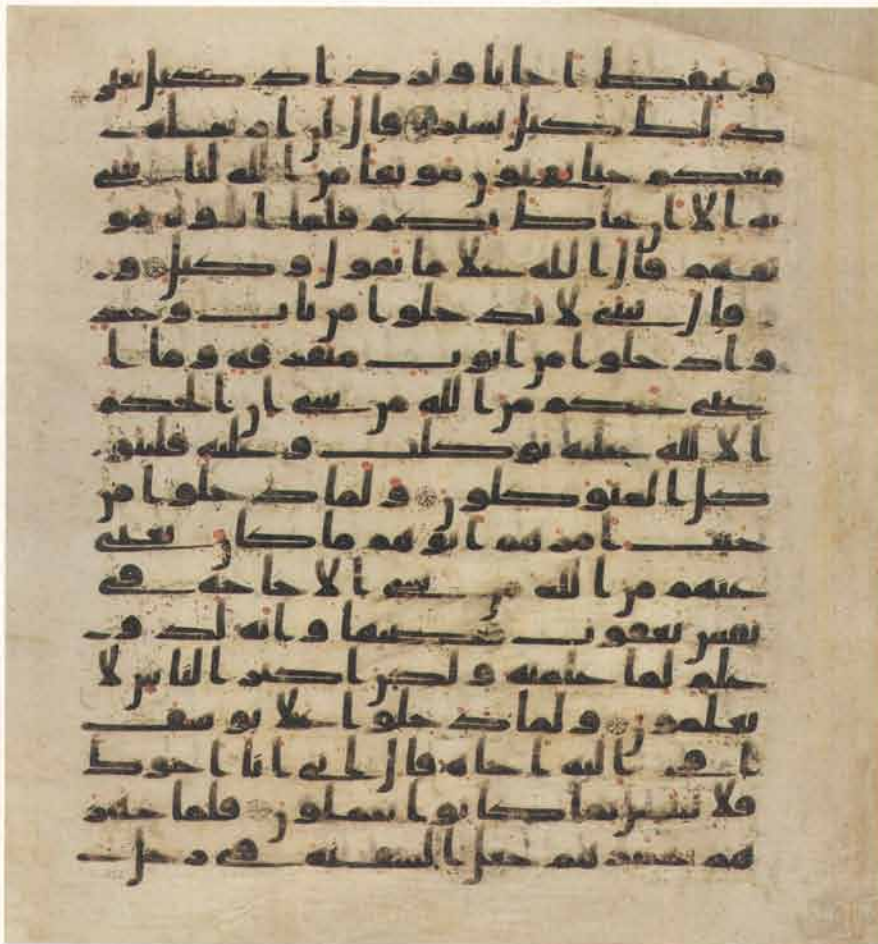 ونحفظ احانا ونزداد كيل بعير
ذلك كيل يسير قال لن ارسله
معكم حتى تؤتون موثقا من الله لتاتننى
به الا ان يحاط بكم فلما اتوه مو
ثقهم قال الله علا ما نقول وكيل و
قال يبنى لا تدخلوا من باب وحد
وادخلوا من ابوب متفرقه وما ا
غنى عنكم من الله من شى ان الحكم
الا لله عليه توكلت وعليه فليتو
كل المتوكلون ولما دخلوا من
حيث امرهم ابوهم ما كان يغنى
عنهم من الله من شى الا حاجه فى
نفس يعقوب قضيها وانه لذو
علم لما علمنه ولكن اكثر الناس لا
يعلمون ولما دخلوا علا يوسف
اوى اليه اخاه قال انى انا اخوك
فلا تبتئس بما كانوا يعملون فلما جهز
هم بجهزهم جعل السقيه فى رحل